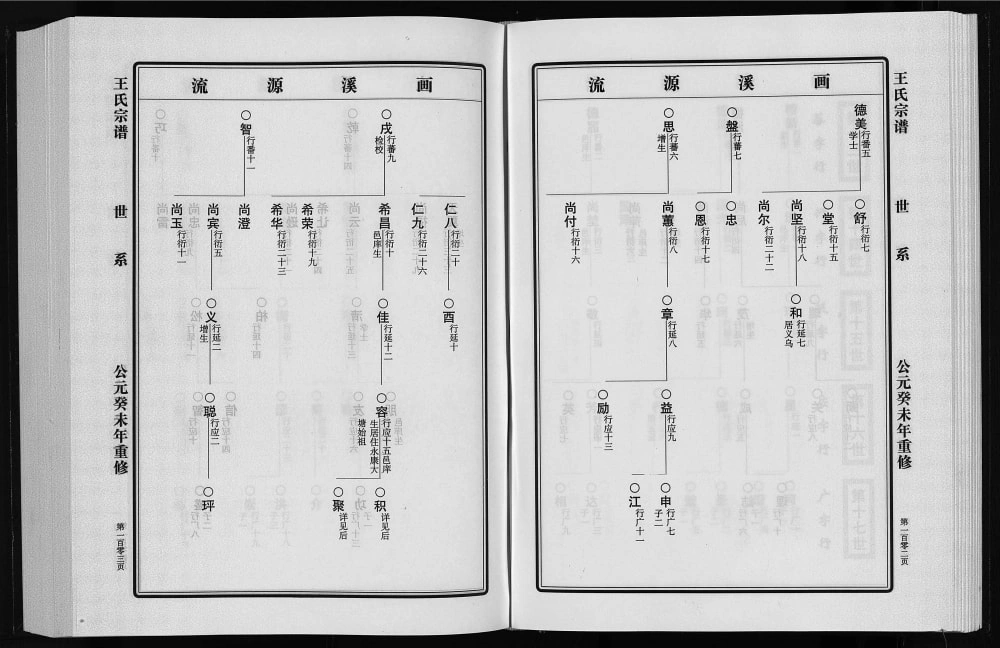 王氏宗谱
世系
公元癸未年重修
第一百零二页
画溪源流
德美 行蕃五 学士
盤 行蕃七
思 行蕃六 增生
舒 行衍七
堂 行衍十五
尚坚 行衍十八
尚尔 行衍二十二
忠
恩 行衍十七
尚蕙 行衍八
尚付 行衍十六
和 行延七 居义乌
章 行延八
益 行应九
励 行应十三
申 行广七 子二
江 行广十一
画溪源流
戌 行蕃九 检校
智 行蕃十一
仁八 行衍二十
仁九 行衍二十六
希昌 行衍十 邑庠生
希荣 行衍十九
希华 行衍二十三
尚澄
尚宾 行衍五
尚玉 行衍十一
酉 行延十
佳 行延十二
义 行延二 增生
容 行应十五邑庠生居住永康大塘始祖
聪 行应二
积 详见后
聚 详见后
玶
王氏宗谱
世系
公元癸未年重修
第一百零三页